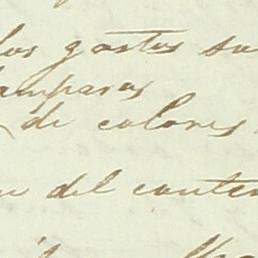 los gastos su
lamparas
de colores
del conten